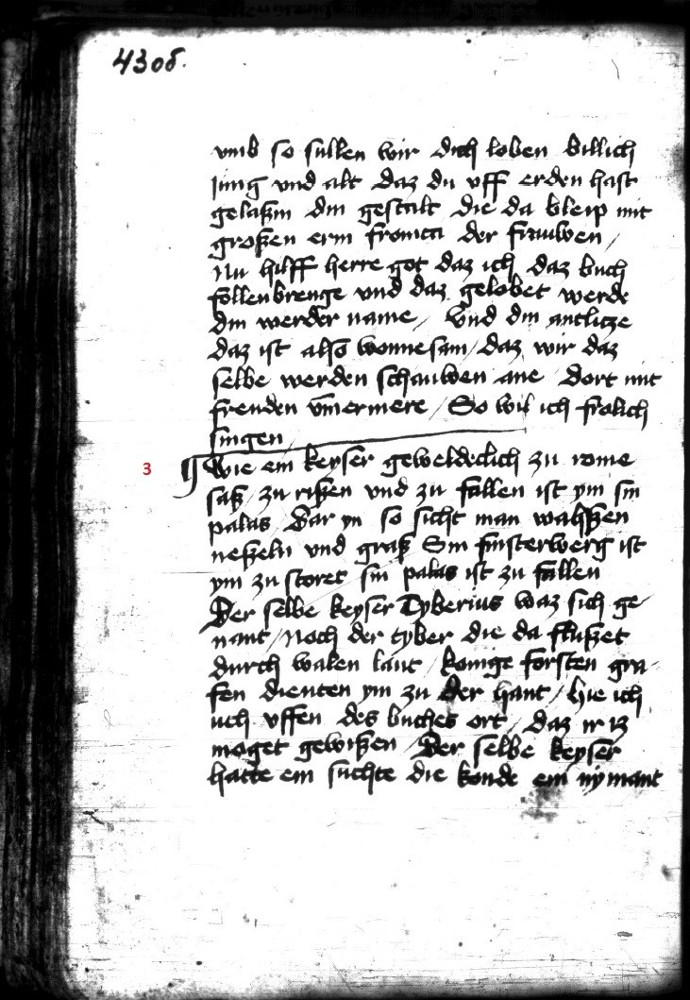 430b.
vmb so sullen wir dich loben billich
Jung vnd alt daz du vff erden hast
gelaßin din gestalt die da bleip mit
großen erin fronica der frauwen /
Nu hilff herre got daz ich daz buch
follenbrenge vnd daz gelobet werde
din werder name / Vnd din antlicze
daz ist also wonnesam / daz wir daz
selbe werden schauwen ane dort mit
freuden vmermere / So wil ich frolich
singen
3 Wie ein keyser geweldeclich zu rome
saß / zu rißen vnd zu fallen ist ym sin
palas Dar yn so sicht man wahßen
neßeln vnd graß Sin finsterwerg ist
ym zu storet sin palas ist zu fallen
Der selbe keyser Tyberius waz sich ge
nant / Noch der tyber die da flußet
durch walen lant / konige forsten gra
fen dienten ym zu der hant / hie ich
uch vffen des buches ort / daz ir iz
moget gewißen / Der selbe keyser
hatte ein suchte die konde em nymant